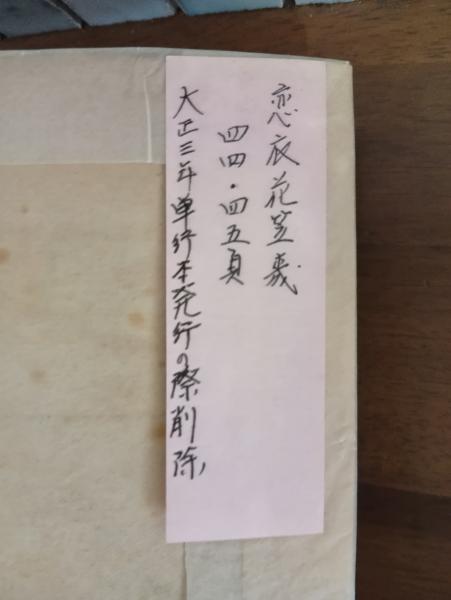 恋衣花笠義
四四・四五頁
大正三年単行本発行の際削除